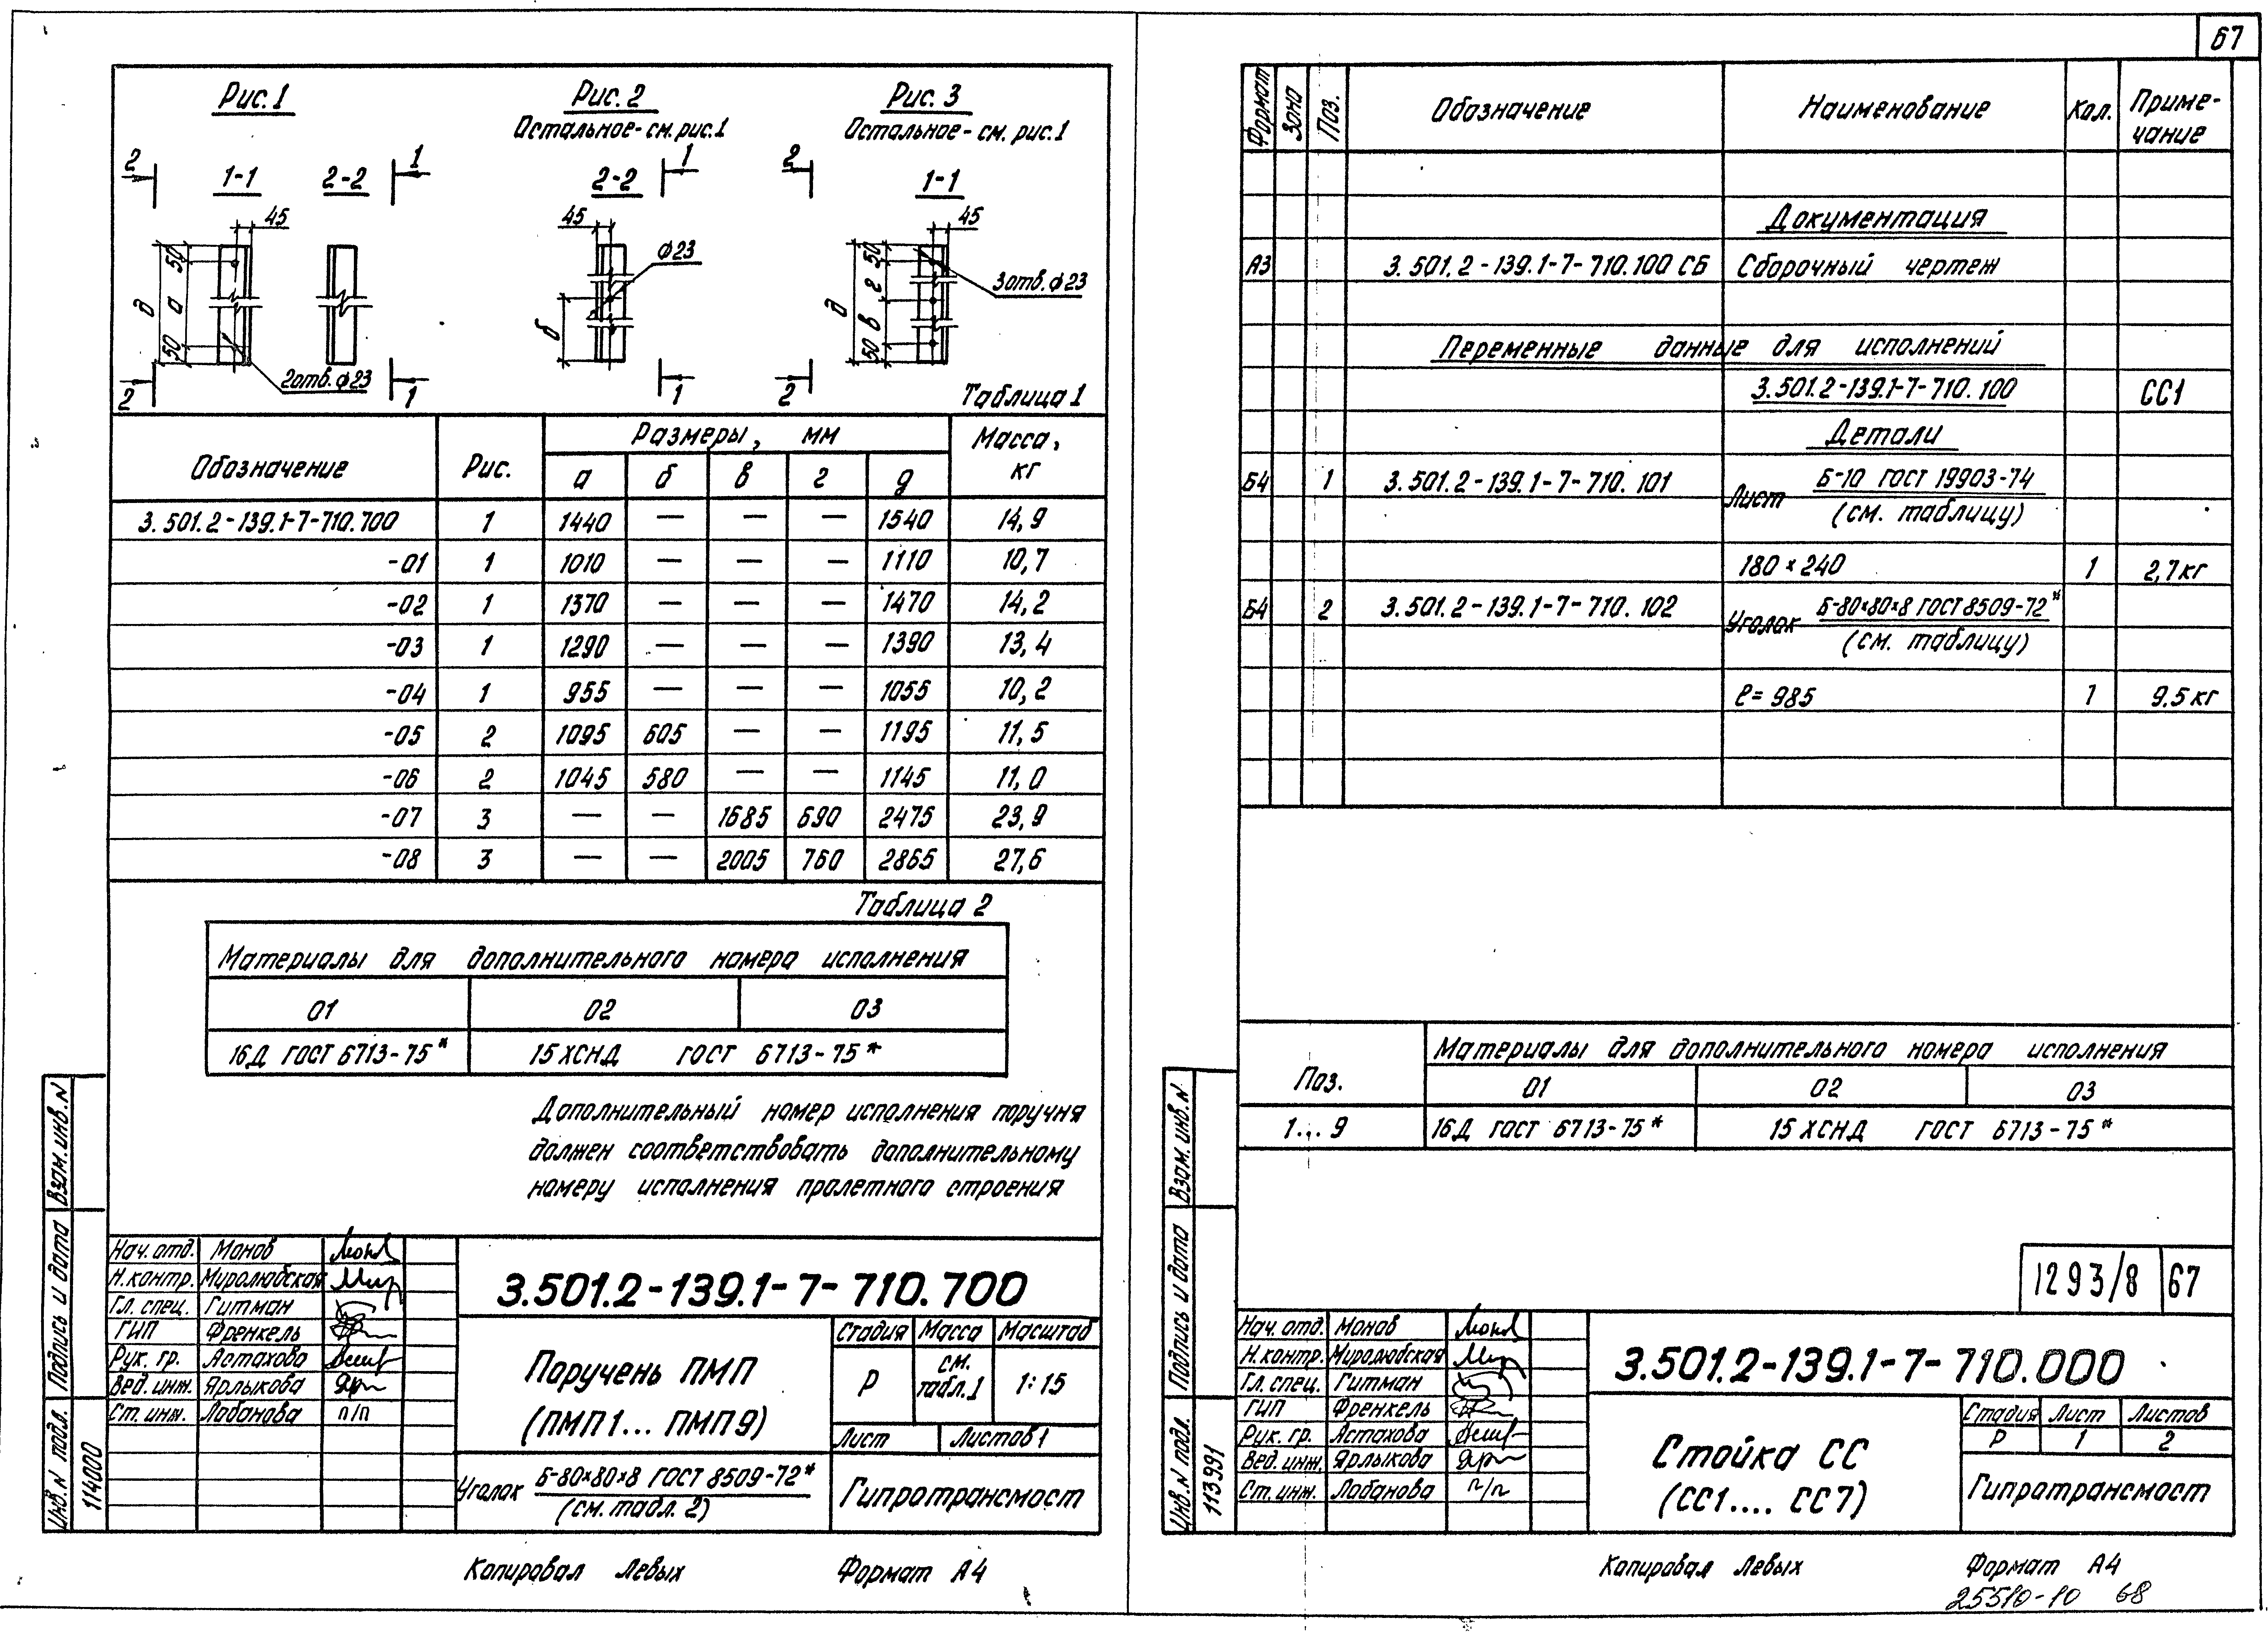 67
Рис. 1
Рис. 2
Остальное - см. рис. 1
Рис. 3
Остальное - см. рис. 1
2
1-1
2-2
1
45
50
а
д
50
2отв. ф23
2
1
2-2
1
45
ф23
б
1
2
1-1
45
50
г
в
д
50
3отв. ф23
2
Таблица 1
Обозначение Рис. Размеры, мм Масса, кг
а б в г д
3.501.2-139.1-7-710.700 1 1440 — — — 1540 14,9
-01 1 1010 — — — 1110 10,7
-02 1 1370 — — — 1470 14,2
-03 1 1290 — — — 1390 13,4
-04 1 955 — — — 1055 10,2
-05 2 1095 605 — — 1195 11,5
-06 2 1045 580 — — 1145 11,0
-07 3 — — 1685 690 2475 23,9
-08 3 — — 2005 760 2865 27,6
Таблица 2
Материалы для дополнительного номера исполнения
01 02 03
16Д ГОСТ 6713-75* 15 ХСНД ГОСТ 6713-75*
Дополнительный номер исполнения поручня
должен соответствовать дополнительному
номеру исполнения пролетного строения
Взам. инв. N
Подпись и дата
Инв. N подл.
114000
Нач. отд. Монов
Н. контр. Миролюбская
Гл. спец. Гитман
ГИП Френкель
Рук. гр. Астахова
Вед. инж. Ярлыкова
Ст. инж. Лобанова п/п
3.501.2-139.1-7-710.700
Поручень ПМП
(ПМП1... ПМП9)
Стадия Масса Масштаб
Р см. табл.1 1:15
Лист Листов 1
Уголок Б-80×80×8 ГОСТ 8509-72*
(см. табл. 2)
Гипротрансмост
Копировал Левых Формат А4
Формат Зона Поз. Обозначение Наименование Кол. Приме-
чание
Документация
А3 3.501.2-139.1-7-710.100 СБ Сборочный чертеж
Переменные данные для исполнений
3.501.2-139.1-7-710.100 СС1
Детали
Б4 1 3.501.2-139.1-7-710.101 Лист Б-10 ГОСТ 19903-74
(см. таблицу)
180×240 1 2,7кг
Б4 2 3.501.2-139.1-7-710.102 Уголок Б-80×80×8 ГОСТ 8509-72*
(см. таблицу)
ℓ=985 1 9.5 кг
Поз. Материалы для дополнительного номера исполнения
01 02 03
1...9 16Д ГОСТ 6713-75* 15 ХСНД ГОСТ 6713-75*
1293/8 67
Взам. инв. N
Подпись и дата
Инв. N подл.
113991
Нач. отд. Монов
Н. контр. Миролюбская
Гл. спец. Гитман
ГИП Френкель
Рук. гр. Астахова
Вед. инж. Ярлыкова
Ст. инж. Лобанова п/п
3.501.2-139.1-7-710.000
Стойка СС
(СС1.... СС7)
Стадия Лист Листов
Р 1 2
Гипротрансмост
Копировал Левых Формат А4
25510-10 68